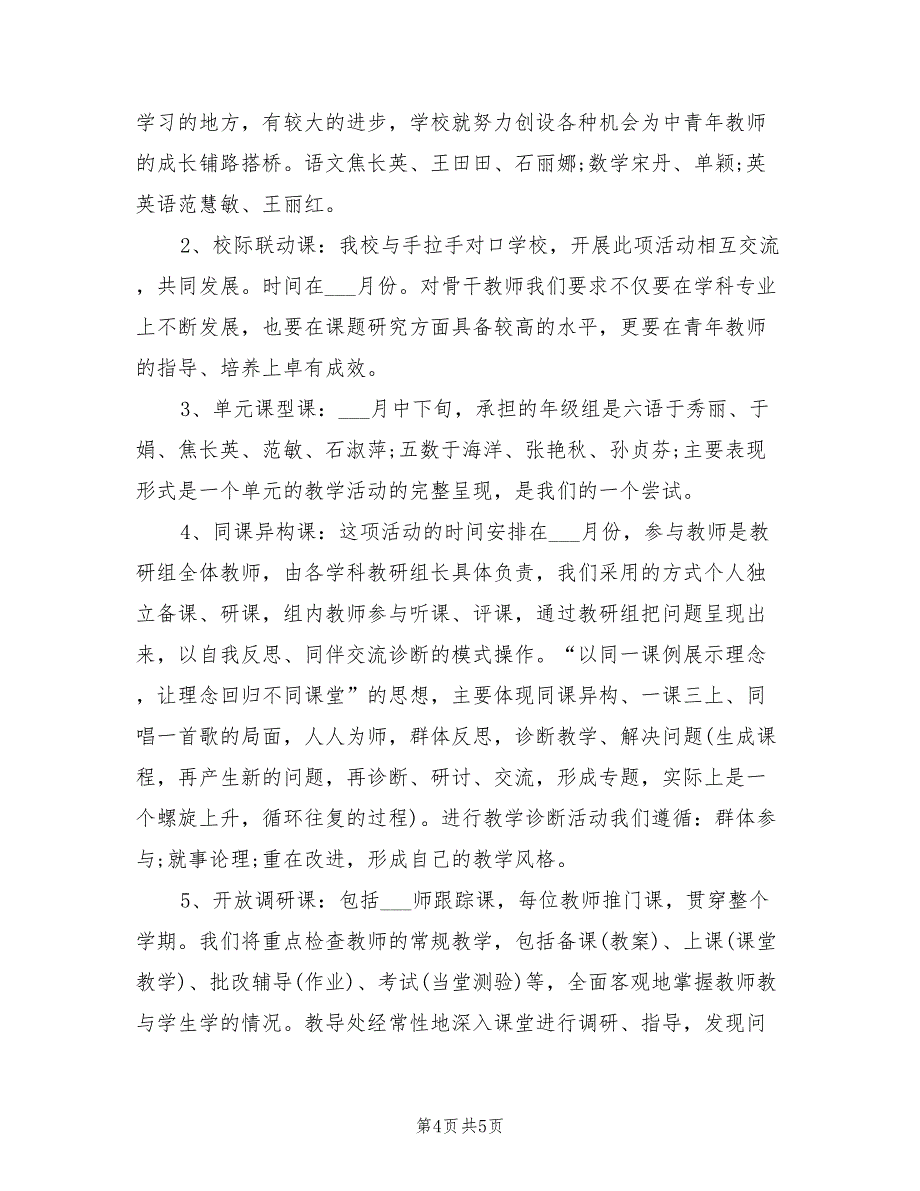 学习的地方，有较大的进步，学校就努力创设各种机会为中青年教师
的成长铺路搭桥。语文焦长英、王田田、石丽娜;数学宋丹、单颖;英
英语范慧敏、王丽红。
2、校际联动课：我校与手拉手对口学校，开展此项活动相互交流
，共同发展。时间在___月份。对骨干教师我们要求不仅要在学科专业
上不断发展，也要在课题研究方面具备较高的水平，更要在青年教师
的指导、培养上卓有成效。
3、单元课型课：___月中下旬，承担的年级组是六语于秀丽、于
娟、焦长英、范敏、石淑萍;五数于海洋、张艳秋、孙贞芬;主要表现
形式是一个单元的教学活动的完整呈现，是我们的一个尝试。
4、同课异构课：这项活动的时间安排在___月份，参与教师是教
研组全体教师，由各学科教研组长具体负责，我们采用的方式个人独
立备课、研课，组内教师参与听课、评课，通过教研组把问题呈现出
来，以自我反思、同伴交流诊断的模式操作。“以同一课例展示理念
，让理念回归不同课堂”的思想，主要体现同课异构、一课三上、同
唱一首歌的局面，人人为师，群体反思，诊断教学、解决问题(生成课
程，再产生新的问题，再诊断、研讨、交流，形成专题，实际上是一
个螺旋上升，循环往复的过程)。进行教学诊断活动我们遵循：群体参
与;就事论理;重在改进，形成自己的教学风格。
5、开放调研课：包括___师跟踪课，每位教师推门课，贯穿整个
学期。我们将重点检查教师的常规教学，包括备课(教案)、上课(课堂
教学)、批改辅导(作业)、考试(当堂测验)等，全面客观地掌握教师教
与学生学的情况。教导处经常性地深入课堂进行调研、指导，发现问
第4页共5页